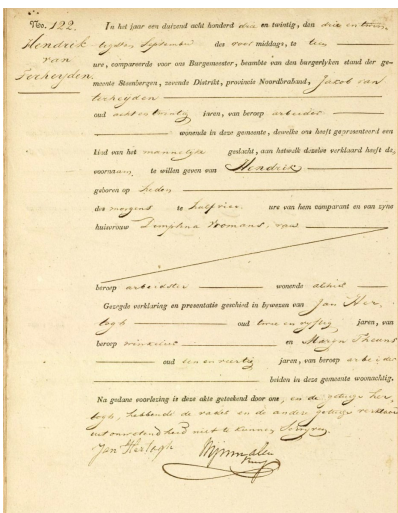 No. 122.
Hendrik
van
Terheyden.
In het jaar een duizend acht honderd drie en twintig, den drie en twin
tigsten September des voor middags, te tien
ure, compareerde voor ons Burgemeester, beambte van den burgerlyken stand der ge-
meente Steenbergen, zevende Distrikt, provincie Noordbraband, Jacob van
terheyden
oud acht en twintig jaren, van beroep arbeider
wonende in deze gemeente, dewelke ons heeft gepresenteerd een
kind van het mannelyke geslacht, aan hetwelk dezelve verklaard heeft de,
voornaam, te willen geven van Hendrik
geboren op heden
des morgens te half vier ure van hem comparant en van zyne
huisvrouw Dimphna Vromans, van
beroep arbeidster wonende alhier
Gezegde verklaring en presentatie geschied in bywezen van Jan Her
togh oud twee en vyftig jaren, van
beroep winkelier en Maryn Theuns
oud een en veertig jaren, van beroep arbeider
beiden in deze gemeente woonachtig.
Na gedane voorlezing is deze akte geteekend door ons, en de getuige her
togh, hebbende de vader en de andere getuige verklaard
uit onwetendheid niet te kunnen schryven.
Jan Hertogh